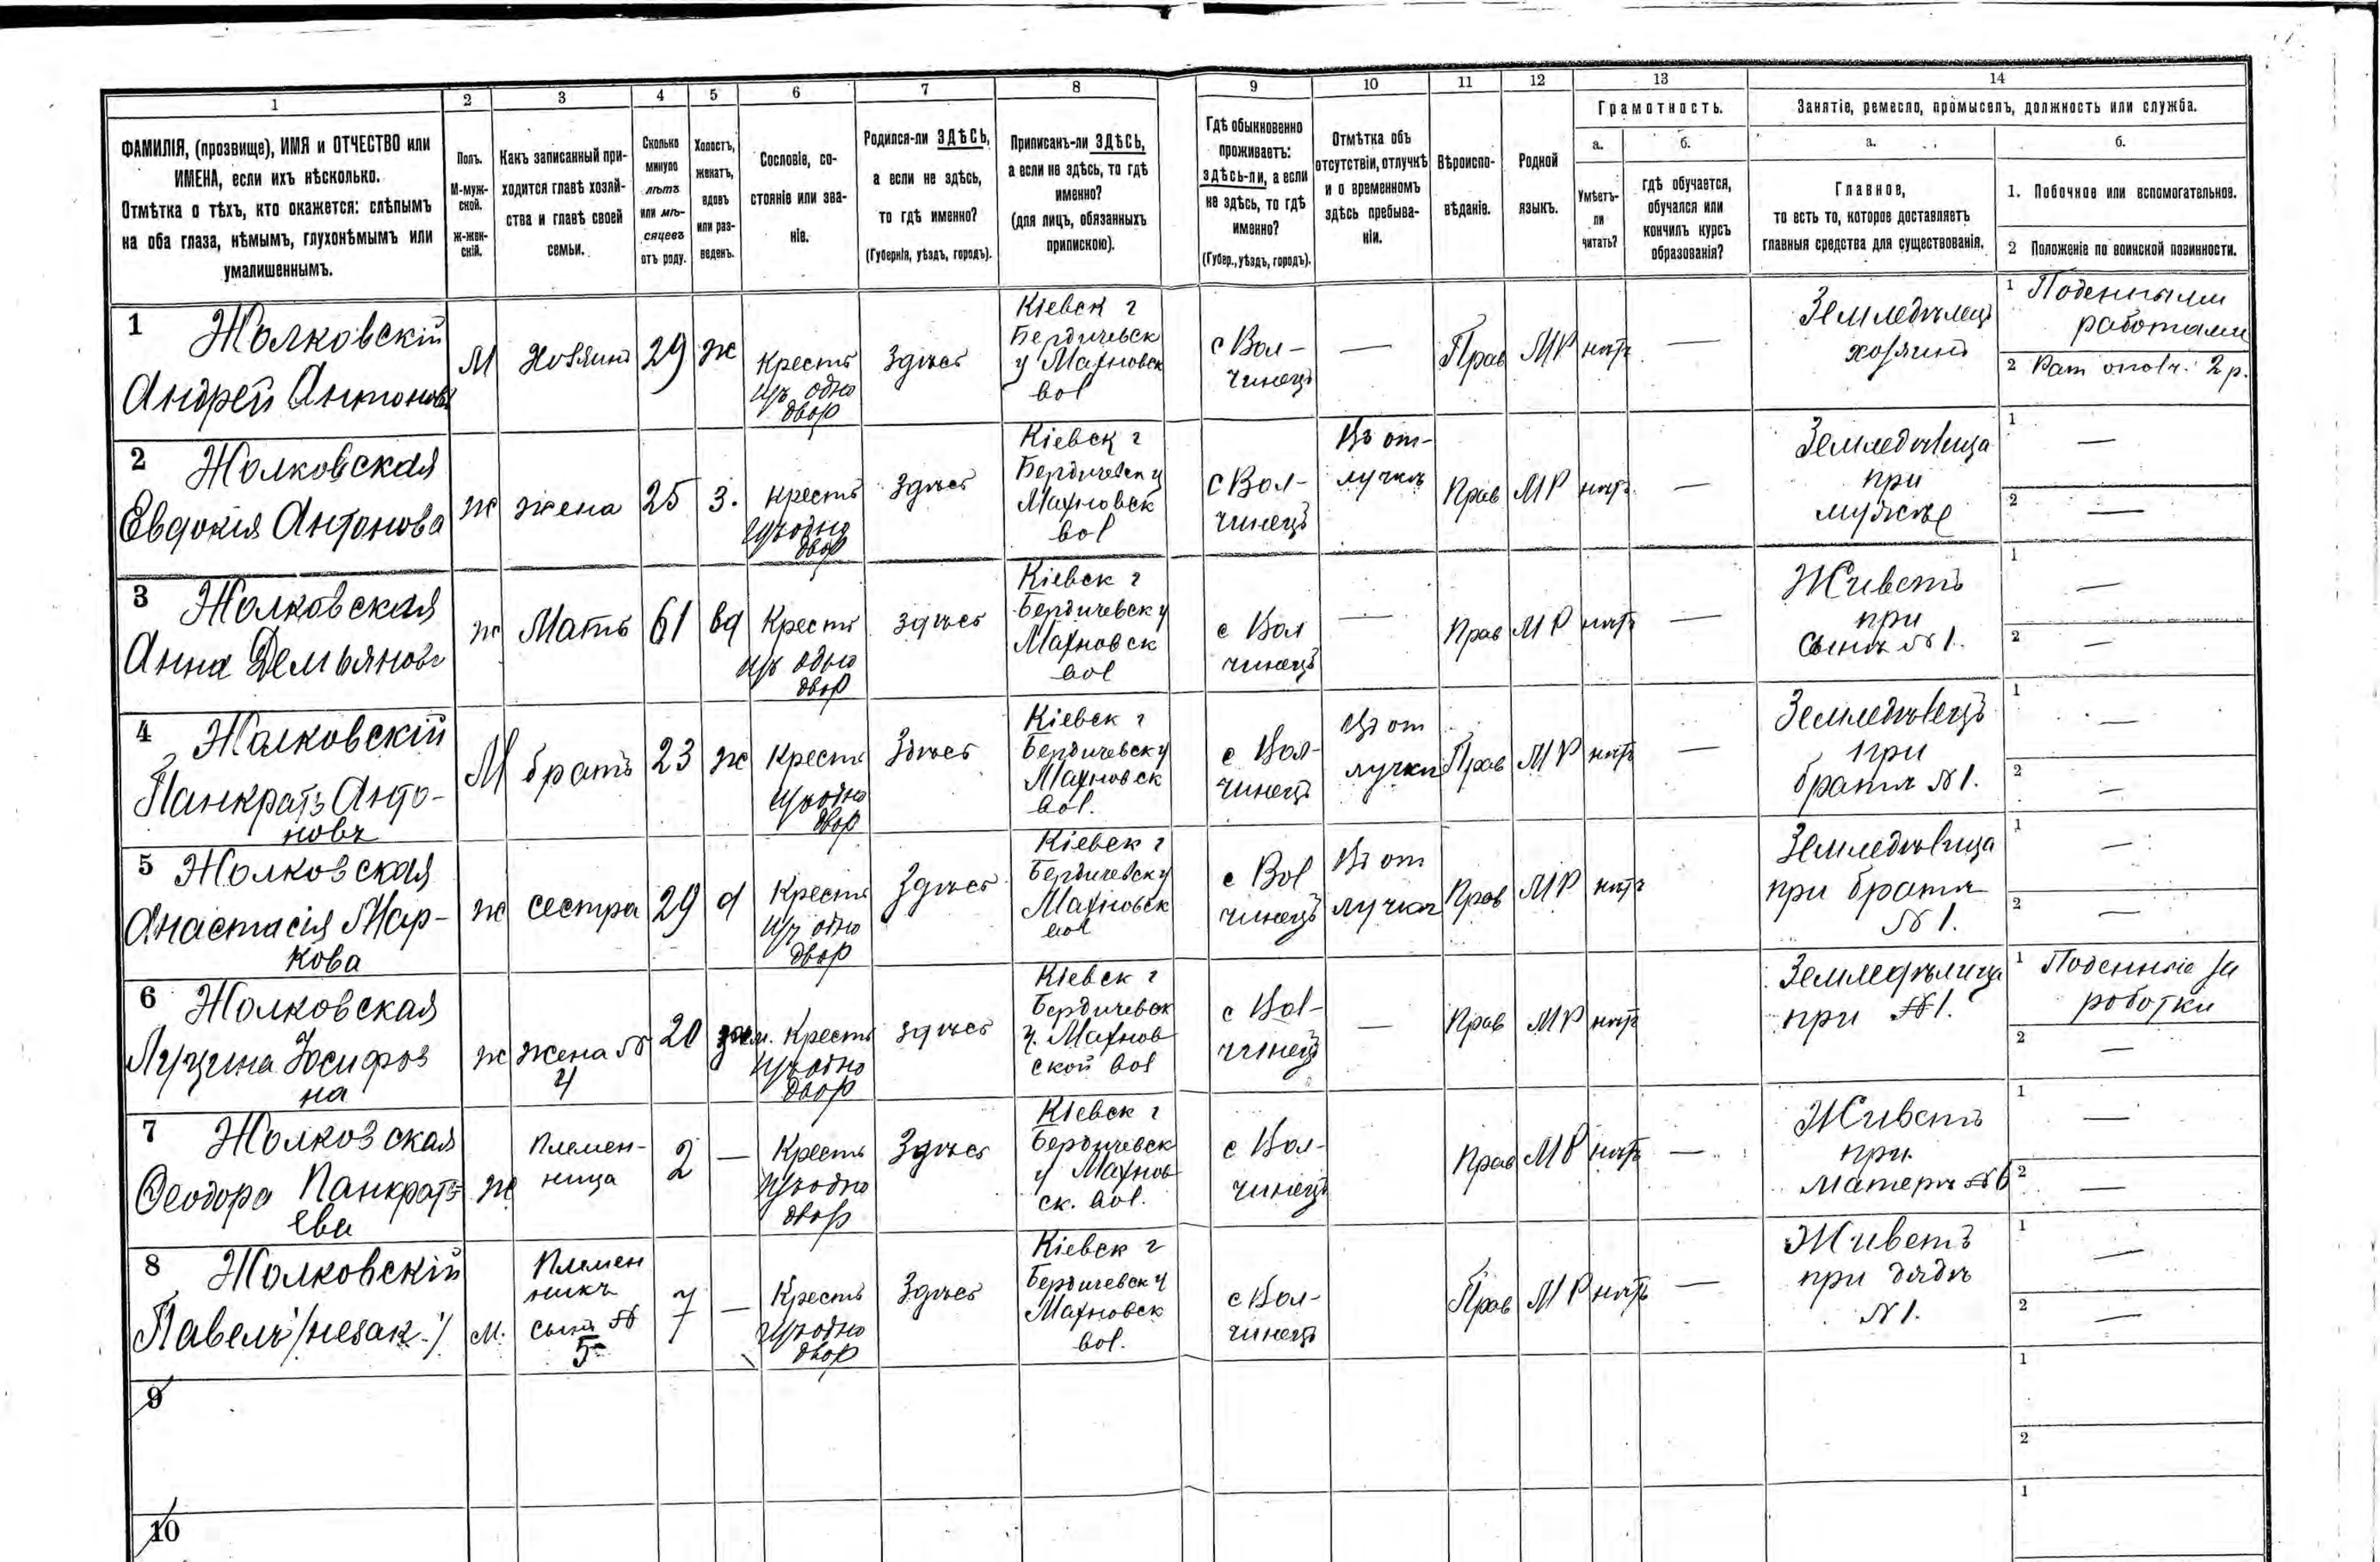 1 2 3 4 5 6 7 8 9 10 11 12 13 14
ФАМИЛІЯ, (прозвище), ИМЯ и ОТЧЕСТВО или
ИМЕНА, если ихъ нѣсколько.
Отмѣтка о тѣхъ, кто окажется: слѣпымъ
на оба глаза, нѣмымъ, глухонѣмымъ или
умалишеннымъ.
Полъ.
М-муж-
ской.
ж-жен-
скій.
Какъ записанный при-
ходится главѣ хозяй-
ства и главѣ своей
семьи.
Сколько
минуло
лѣтъ
или мѣ-
сяцевъ
отъ роду.
Холостъ,
женатъ,
вдовъ
или раз-
веденъ.
Сословіе, со-
стояніе или зва-
ніе.
Родился-ли ЗДѢСЬ,
а если не здѣсь,
то гдѣ именно?
(Губернія, уѣздъ, городъ).
Приписанъ-ли ЗДѢСЬ,
а если не здѣсь, то гдѣ
именно?
(для лицъ, обязанныхъ
припискою).
Гдѣ обыкновенно
проживаетъ:
здѣсь-ли, а если
не здѣсь, то гдѣ
именно?
(Губер., уѣздъ, городъ).
Отмѣтка объ
отсутствіи, отлучкѣ
и о временномъ
здѣсь пребыва-
ніи.
Вѣроиспо-
вѣданіе.
Родной
языкъ.
Грамотность.
а.
Умѣетъ-
ли
читать?
б.
гдѣ обучается,
обучался или
кончилъ курсъ
образованія?
Занятіе, ремесло, промыселъ, должность или служба.
а.
Главное,
то есть то, которое доставляетъ
главныя средства для существованія.
б.
1. Побочное или вспомогательное.
2 Положеніе по воинской повинности.
1 Жолковскій
Андрей Антоновъ
М
Хозяинъ
29
ж
Крестъ
изъ одно
двор
Здѣсь
Кіевск г
Бердичевск
у Махновск
вол
с Вол-
чинецъ
—
Прав
МР
нѣтъ
—
Земледѣлецъ
хозяинъ
1 Поденными
работами
2 Рат ополч. 2 р.
2 Жолковская
Евдокія Антонова
ж
жена
25
з.
Крестъ
изъ одно
двор
Здѣсь
Кіевск г
Бердичевск у
Махновск
вол
с Вол-
чинецъ
Въ от-
лучкѣ
Прав
МР
нѣтъ
—
Земледѣлица
при
мужѣ
1 —
2 —
3 Жолковская
Анна Демьянова
ж
Мать
61
вд
Крестъ
изъ одно
двор
здѣсь
Кіевск г
Бердичевск у
Махновск
вол
с Вол
чинецъ
—
Прав
МР
нѣтъ
—
Живетъ
при
сынѣ № 1.
1 —
2 —
4 Жолковскій
Панкратъ Анто-
новъ
М
братъ
23
ж
Крестъ
изъ одно
двор
Здѣсь
Кіевск г
Бердичевск у
Махновск
вол.
с Вол-
чинецъ
Въ от
лучки
Прав
МР
нѣтъ
—
Земледѣлецъ
при
братѣ № 1.
1 —
2 —
5 Жолковская
Анастасія Мар-
кова
ж
сестра
29
д
Крестъ
изъ одно
двор
Здѣсь
Кіевск г
Бердичевск у
Махновск
вол
с Вол
чинецъ
Въ от
лучкѣ
Прав
МР
нѣтъ
Земледѣлица
при братѣ
№ 1.
1 —
2 —
6 Жолковская
Луцина Юсифов
на
ж
жена №
4
20
Крестъ
изъ одно
двор
здѣсь
Кіевск г
Бердичевск
у. Махнов
ской вол
с Вол-
чинецъ
—
Прав
МР
нѣтъ
Земледѣлица
при № 1.
1 Поденные за
роботки
2 —
7 Жолковская
Ѳеодора Панкрать
ева
ж
Племен-
ница
2
—
Крестъ
изъ одно
двор
Здѣсь
Кіевск г
Бердичевск
у Махнов
ск. вол.
с Вол-
чинецъ
Прав
МР
нѣтъ
—
Живетъ
при
матери № 6
1 —
2 —
8 Жолковскій
Павелъ /незак./
м.
Племен
никъ
сынъ №
5
7
—
Крестъ
изъ одно
двор
Здѣсь
Кіевск г
Бердичевск у
Махновск
вол.
с Вол-
чинецъ
Прав
МР
нѣтъ
—
Живетъ
при дядѣ
№ 1.
1 —
2 —
9
1
2
10
1